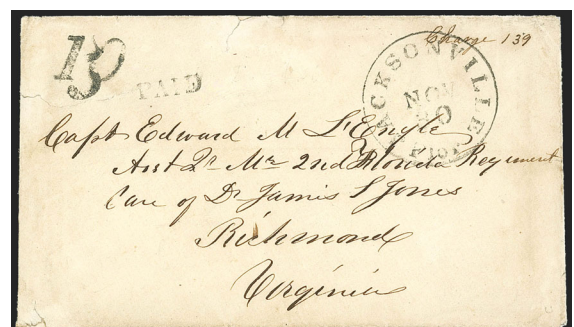 Charge 139
10
5
PAID
JACKSONVILLE
NOV
30
Flor
Capt Edward M L'Engle
Asst Qr Mr 2nd Florida Regiment
Care of Dr James S Jones
Richmond
Virginia